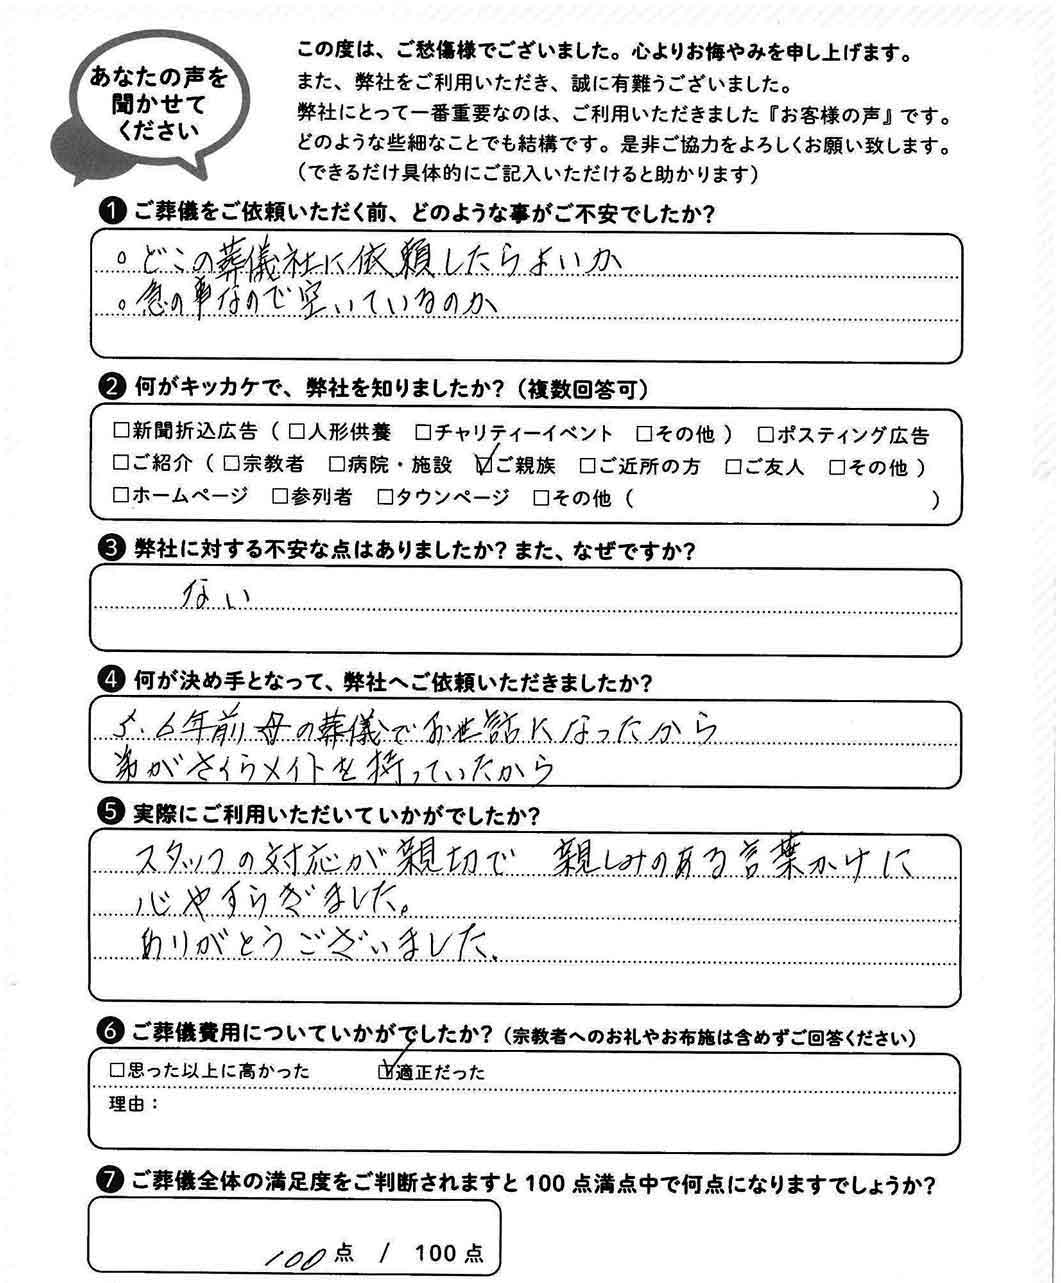 あなたの声を
聞かせて
ください
この度は、ご愁傷様でございました。心よりお悔やみを申し上げます。
また、弊社をご利用いただき、誠に有難うございました。
弊社にとって一番重要なのは、ご利用いただきました『お客様の声』です。
どのような些細なことでも結構です。是非ご協力をよろしくお願い致します。
(できるだけ具体的にご記入いただけると助かります)
❶ ご葬儀をご依頼いただく前、どのような事がご不安でしたか?
。どこの葬儀社に依頼したらよいか
。急の事なので空いているのか
❷ 何がキッカケで、弊社を知りましたか?(複数回答可)
□新聞折込広告(□人形供養 □チャリティーイベント □その他) □ポスティング広告
□ご紹介(□宗教者 □病院・施設 ☑ご親族 □ご近所の方 □ご友人 □その他)
□ホームページ □参列者 □タウンページ □その他( )
❸ 弊社に対する不安な点はありましたか?また、なぜですか?
ない
❹ 何が決め手となって、弊社へご依頼いただきましたか?
5.6年前母の葬儀でお世話になったから
弟がさくらメイトを持っていたから
❺ 実際にご利用いただいていかがでしたか?
スタッフの対応が親切で 親しみのある言葉かけに
心やすらぎました。
ありがとうございました。
❻ ご葬儀費用についていかがでしたか?(宗教者へのお礼やお布施は含めずご回答ください)
□思った以上に高かった ☑適正だった
理由:
❼ ご葬儀全体の満足度をご判断されますと100点満点中で何点になりますでしょうか?
100点 / 100点